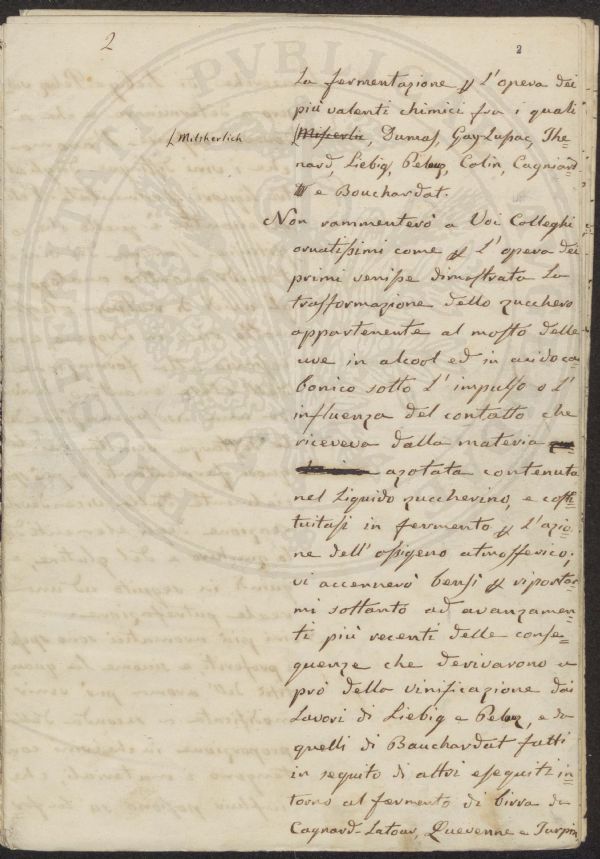 2
2
la fermentazione p l'opera dei
più valenti chimici fra i quali
Mitsherlich
Dumas, Gay-Lussac, The=
nard, Liebig, Pelouz, Colin, Cagniard=
e Bouchardat.
Non rammenterò a Voi Colleghi
ornatissimi come p l'opera dei
primi venisse dimostrata la
trasformazione dello zucchero
appartenente al mosto delle
uve in alcool ed in acido ca=
bonico sotto l'impulso o l'
influenza del contatto che
riceveva dalla materia
azotata contenuta
nel liquido zuccherino, e costi=
tuitasi in fermento p l'azio=
ne dell'ossigeno atmosferico;
vi accennerò bensì p riportar=
mi soltanto ad avanzamen=
ti più recenti delle conse=
guenze che derivarono a
prò della vinificazione dai
lavori di Liebig e Pelouz, e da
quelli di Bauchardat fatti
in seguito di altri eseguiti in=
torno al fermento di birra da
Cagnard-Latour, Quevenne e Turpin,